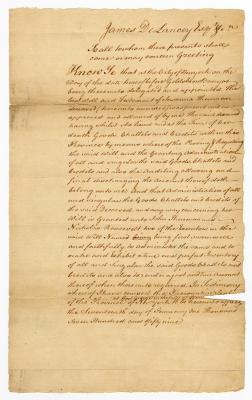 James De Lancey Esqr. &c.
To all to whom these presents shall
come or may concern Greeting
Know Ye that at the City of New york on the
day of the date hereof before
being thereunto delegated and appointed the
last Will and Testament of
deceased, was proved and
approved and allowed of by me the said deceased
having whilst he lived and at the time of his
death Goods Chattels and Credits within this
Province by means whereof the Proving & Registring
the said Will and the Granting Administration
of all and singular the said Goods Chattels and
Credits and also the Auditing allowing and
final discharging the Account thereof doth
belong unto me And that Administration of all
and singular the Goods Chattels and Credits of
the said Deceased and any way concerning his
Will is Granted unto John
Nicholas Roosevelt two of the Executors in the
said Will Named being first
and faithfully to Administer the same and to
make and Exhibit a true and perfect Inventory
of all and Singular the said Goods Chattels and
Credits and also to render a just and true Account
thereof when thereunto required In Testimony
whereof I have caused the Prerogative Seal
of the Province of New york to be hereunto affixed
the Seventeenth day of January one Thousand
Seven Hundred and fifty nine